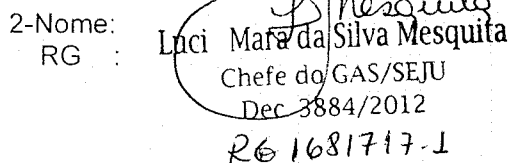 Mesquita
2-Nome: Luci Mara da Silva Mesquita
RG :
Chefe do GAS/SEJU
Dec 3884/2012
RG 1681717-1